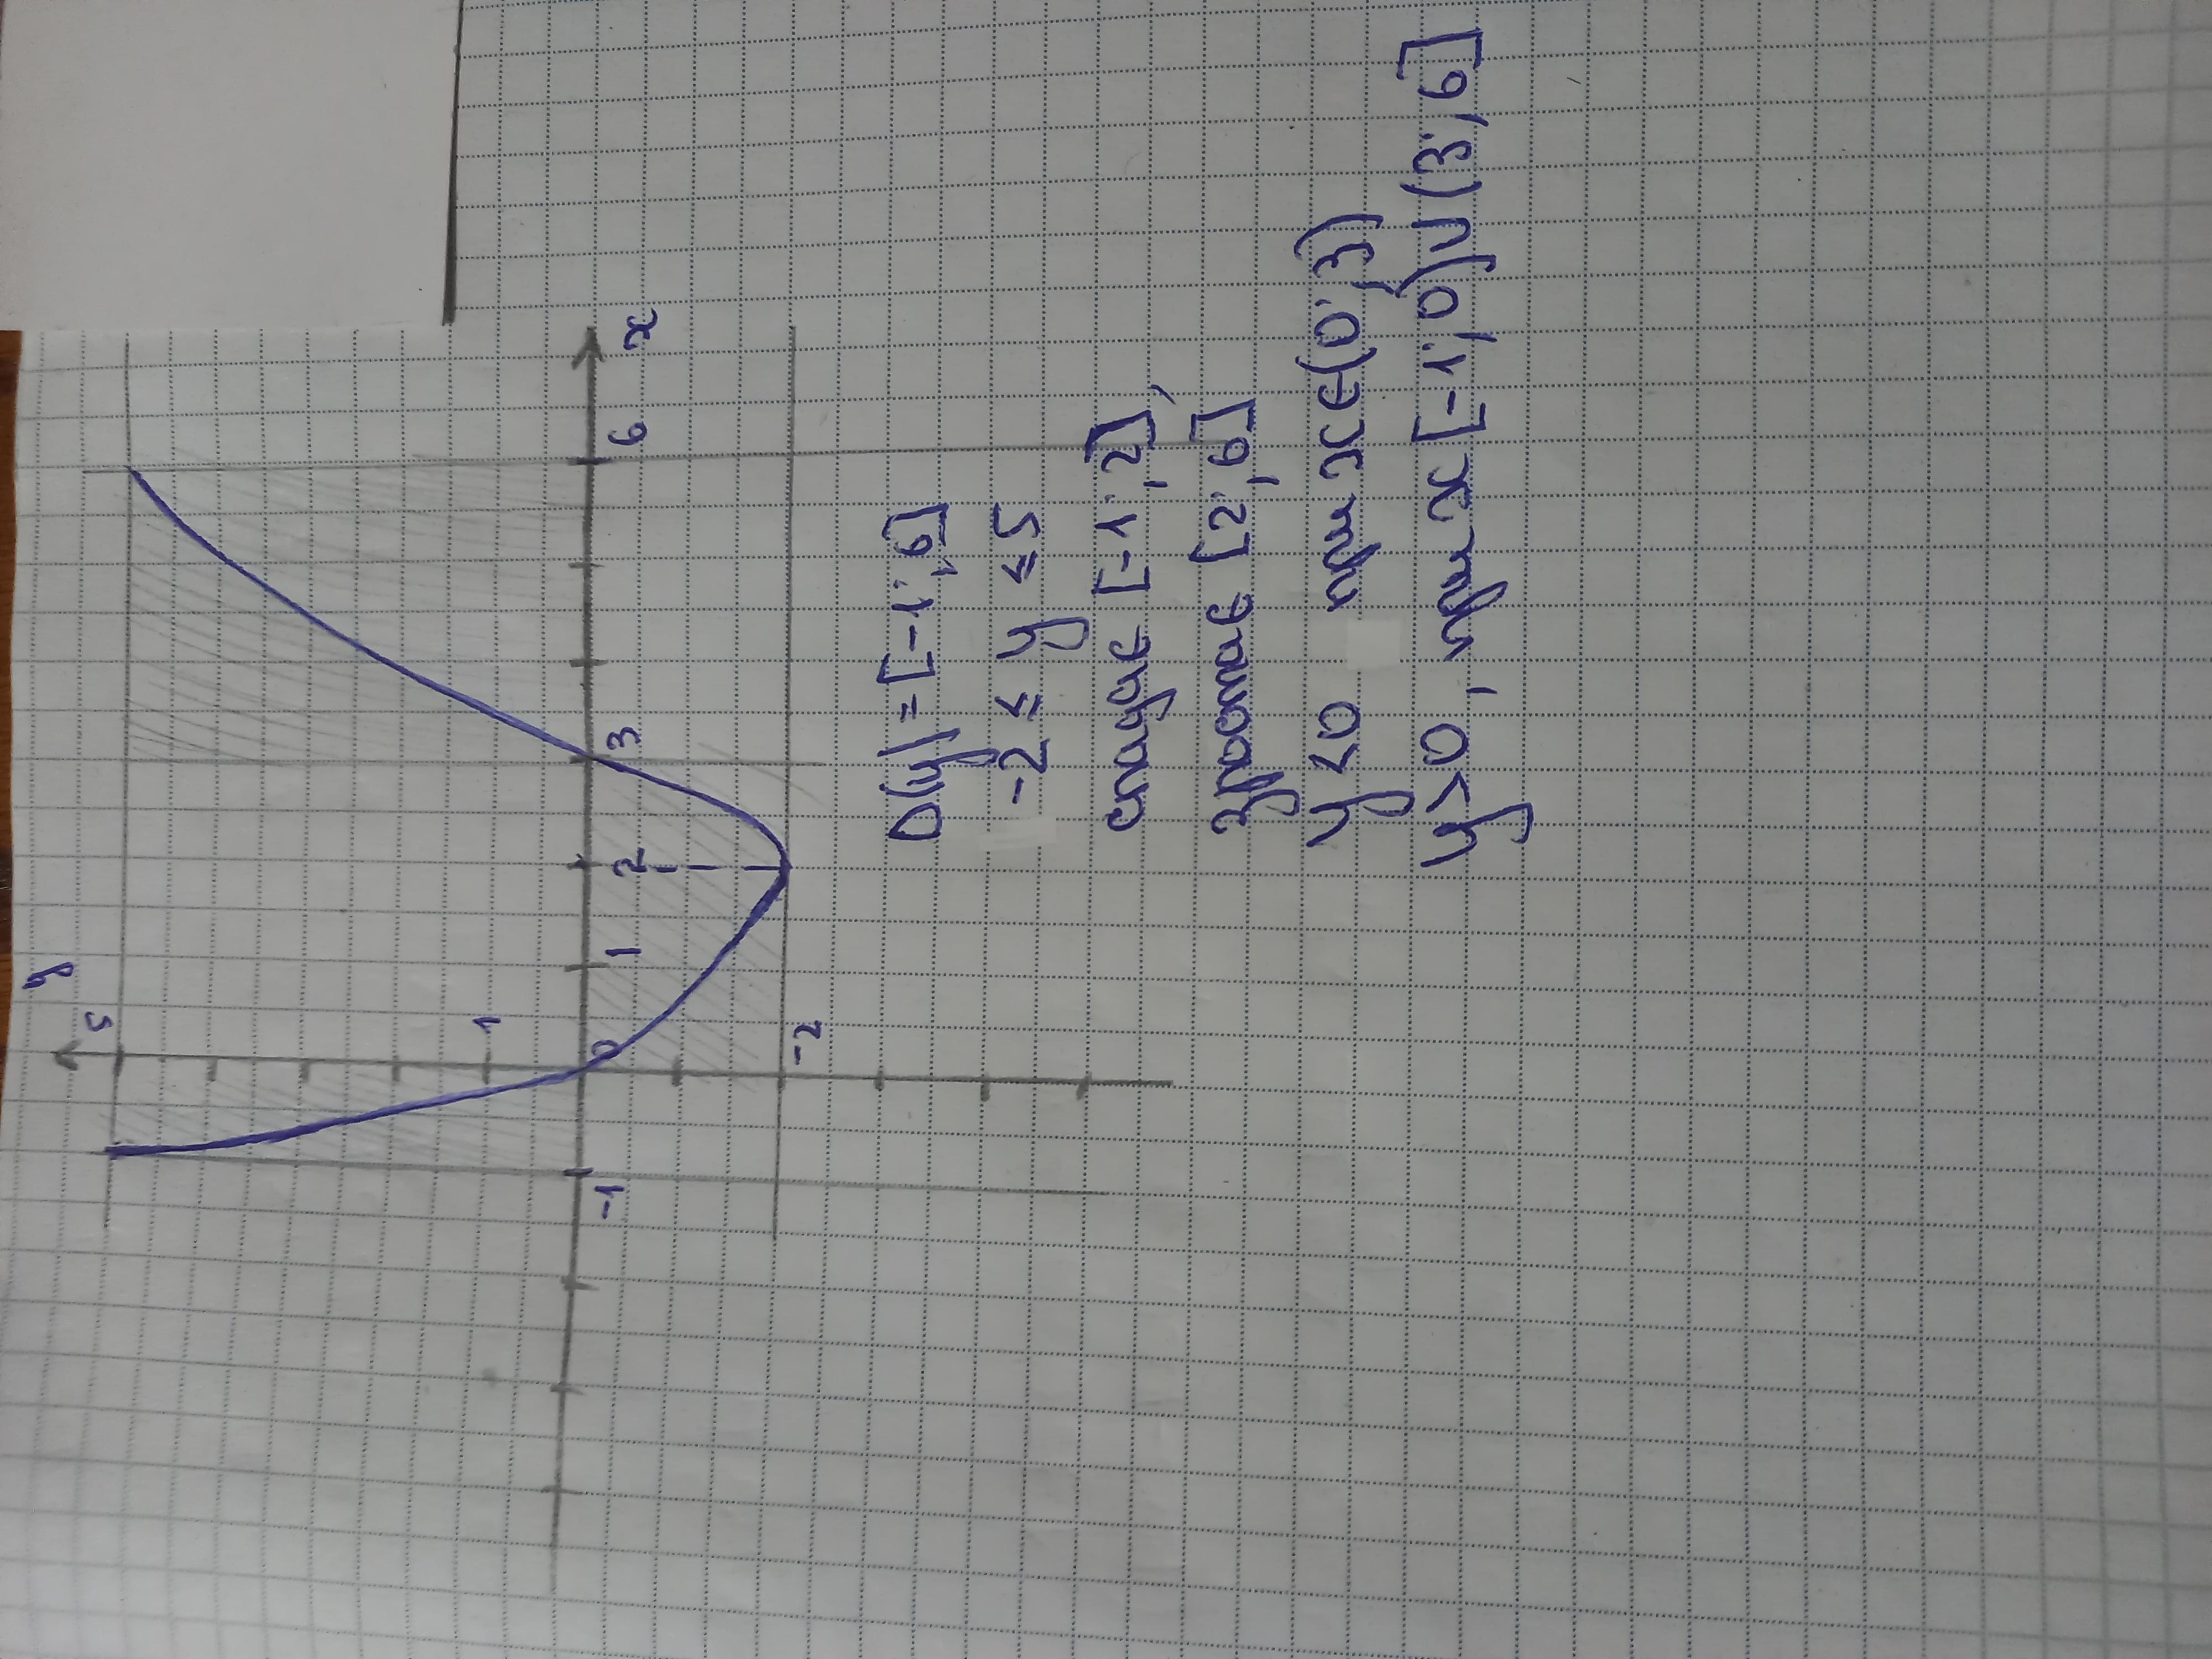 y
5
1
0
-1
1
2
3
6
x
-2
D(y) = [-1; 6]
-2 ≤ y ≤ 5
спадає [-1; 2]
зростає [2; 6]
y < 0 при x ∈ (0; 3)
y > 0, при x [-1; 0) ∪ (3; 6]